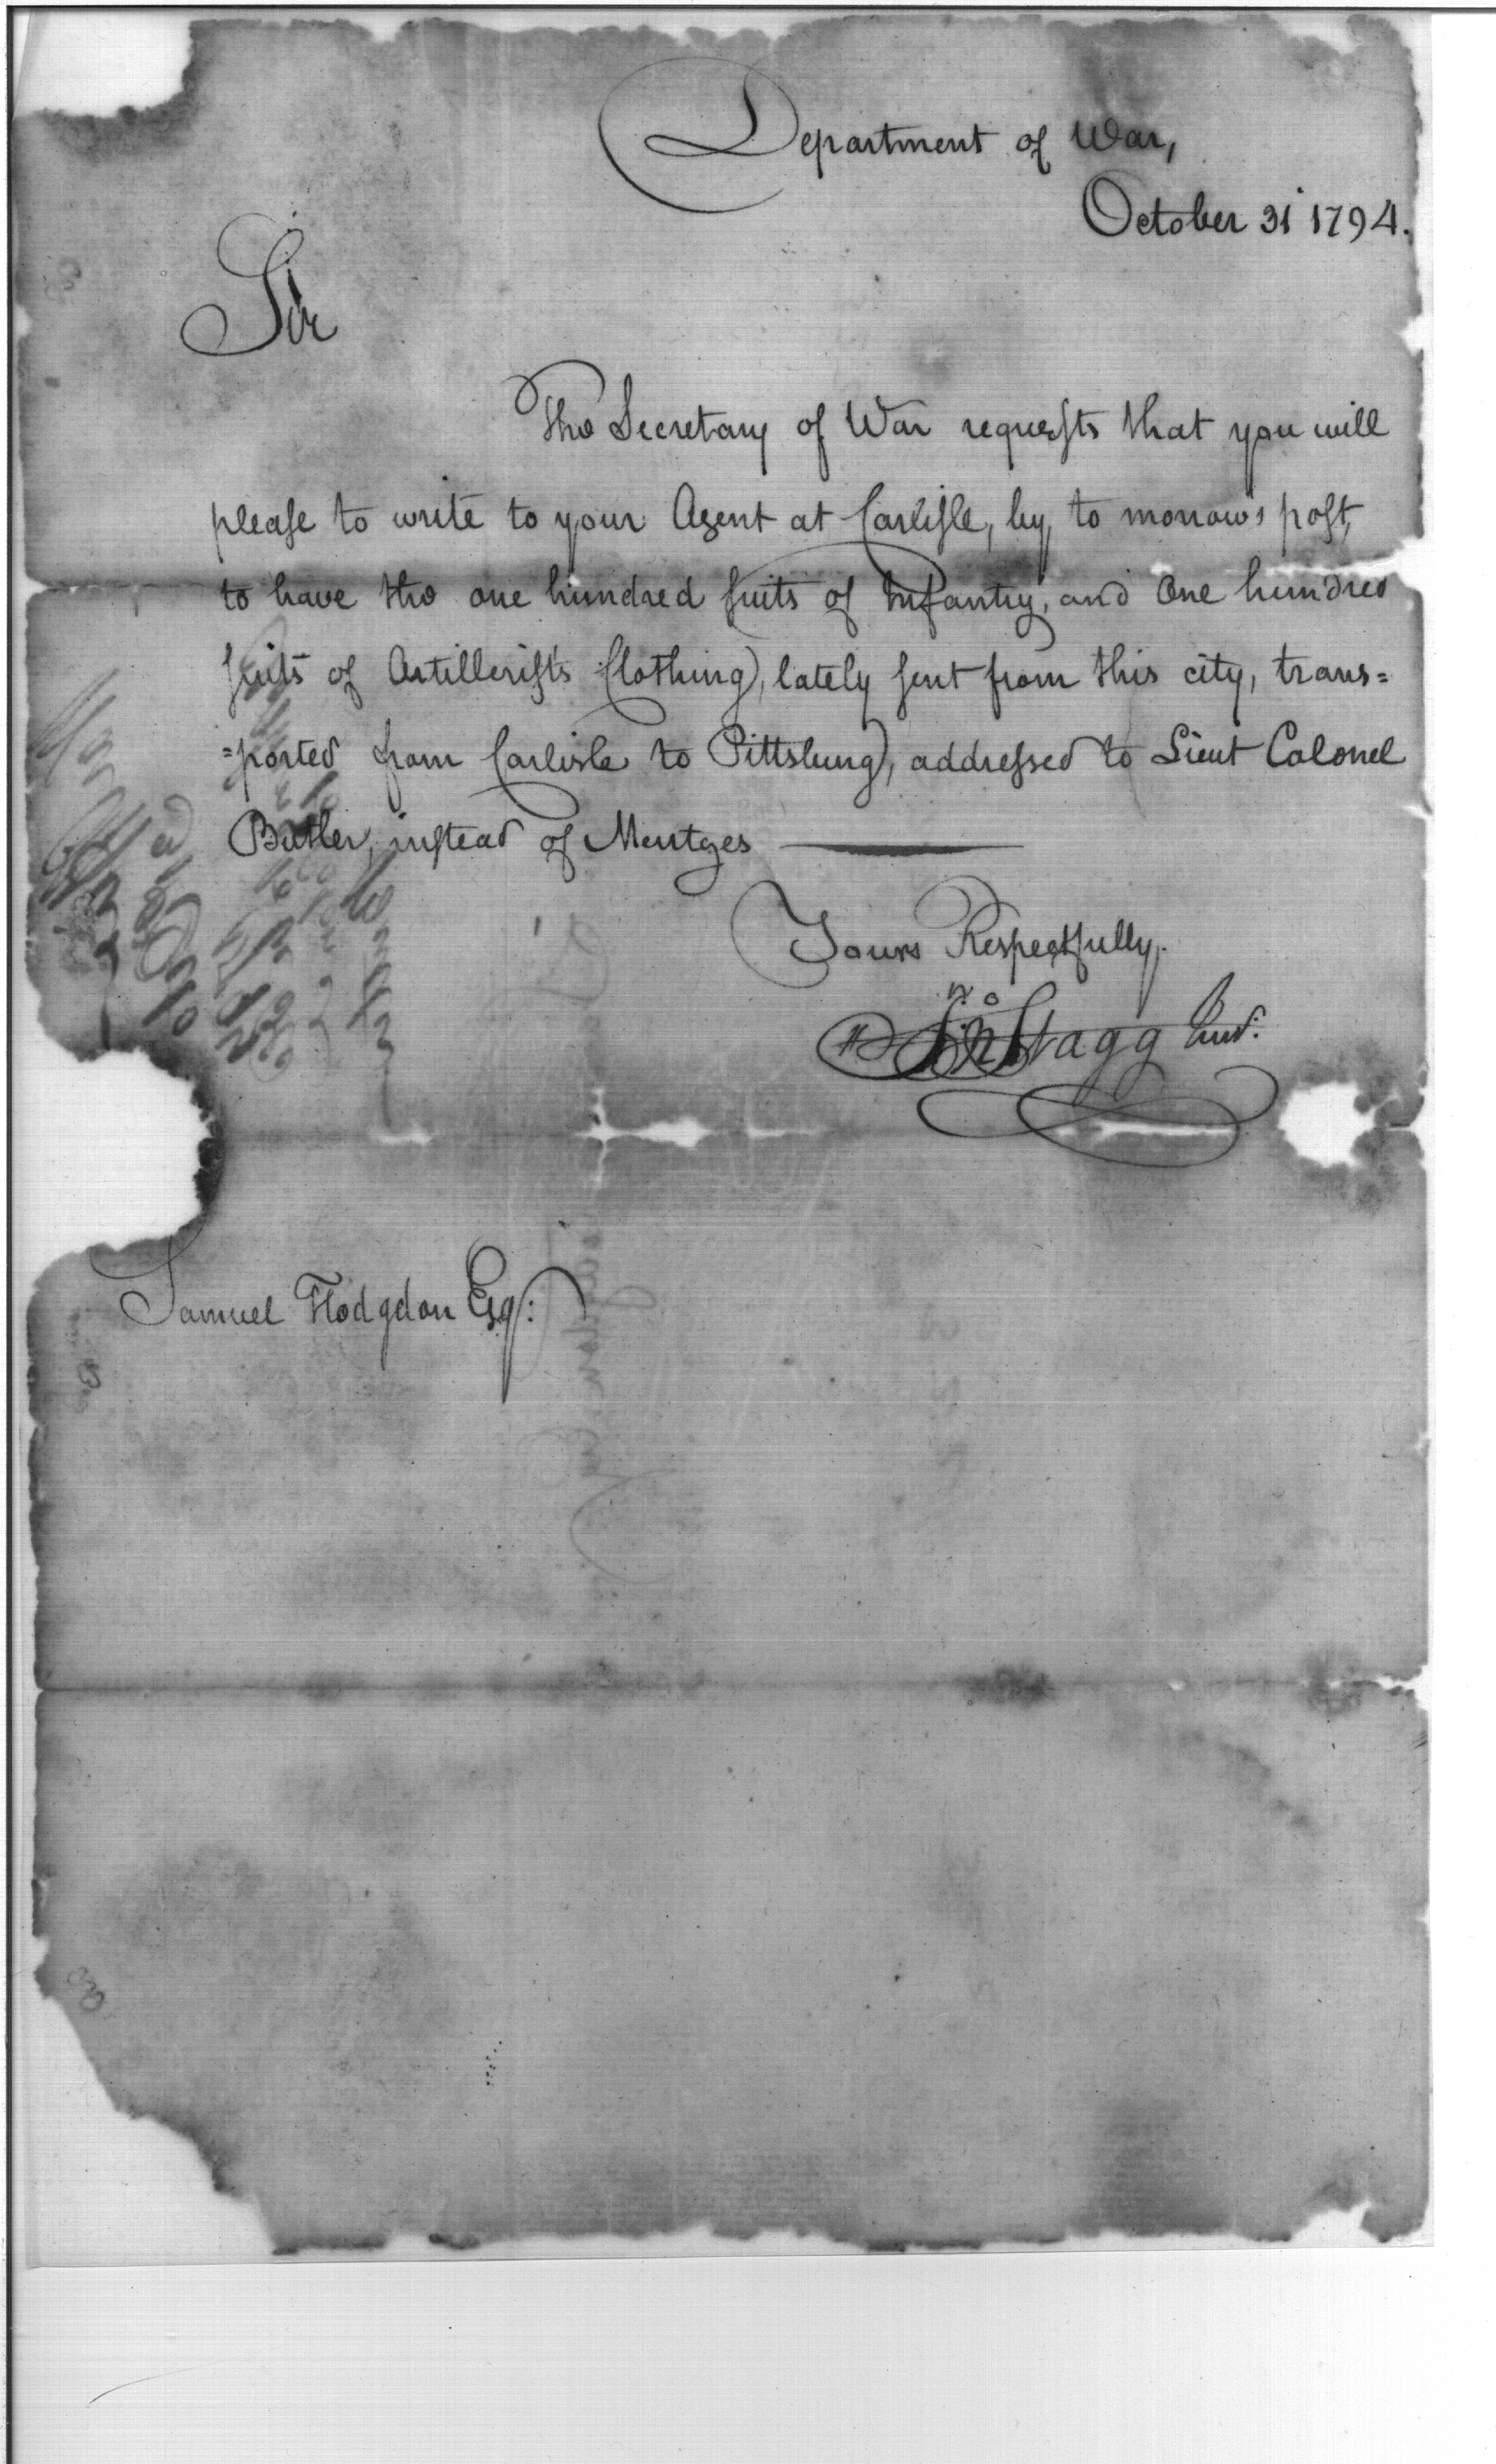 Department of War,
October 31 1794.
Sir
The Secretary of War requests that you will
please to write to your Agent at Carlisle, by to morrow's post,
to have the one hundred suits of Infantry, and One hundred
suits of Artillerists Clothing, lately sent from this city, trans=
=ported from Carlisle to Pittsburg, addressed to Lieut Colonel
Butler, instead of Mentges
Yours Respectfully.
Jno Stagg Junr.
Samuel Hodgdon Esq: